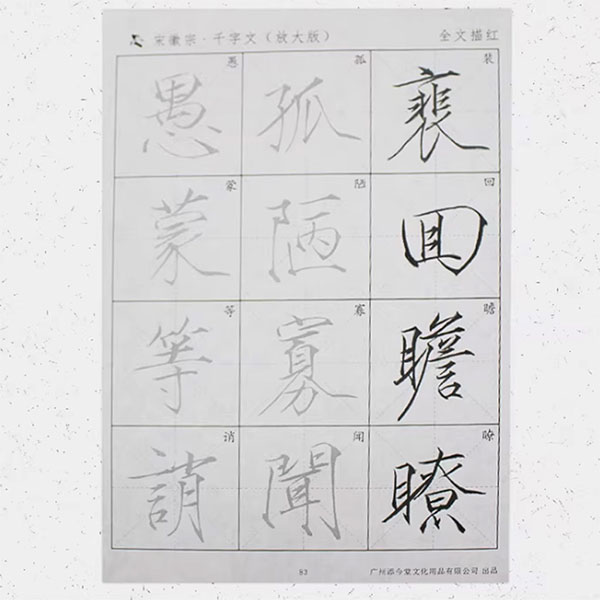 宋徽宗·千字文（放大版）
全文描红
裵囬瞻瞭
裴回瞻瞭
孤陋寡聞
孤陋寡闻
愚蒙等誚
愚蒙等诮
广州添今堂文化用品有限公司 出品